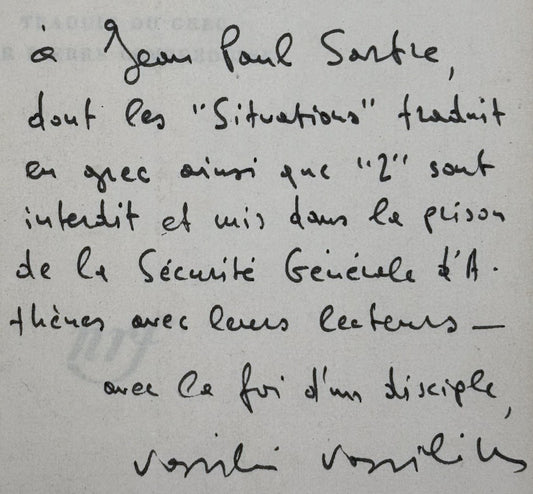 à Jean Paul Sartre,
dont les "Situations" traduit
en grec ainsi que "Z" sont
interdit et mis dans la prison
de la Sécurité Générale d'A-
thènes avec leurs lecteurs —
avec la foi d'un disciple,
Vassilis Vassilikos
nrf